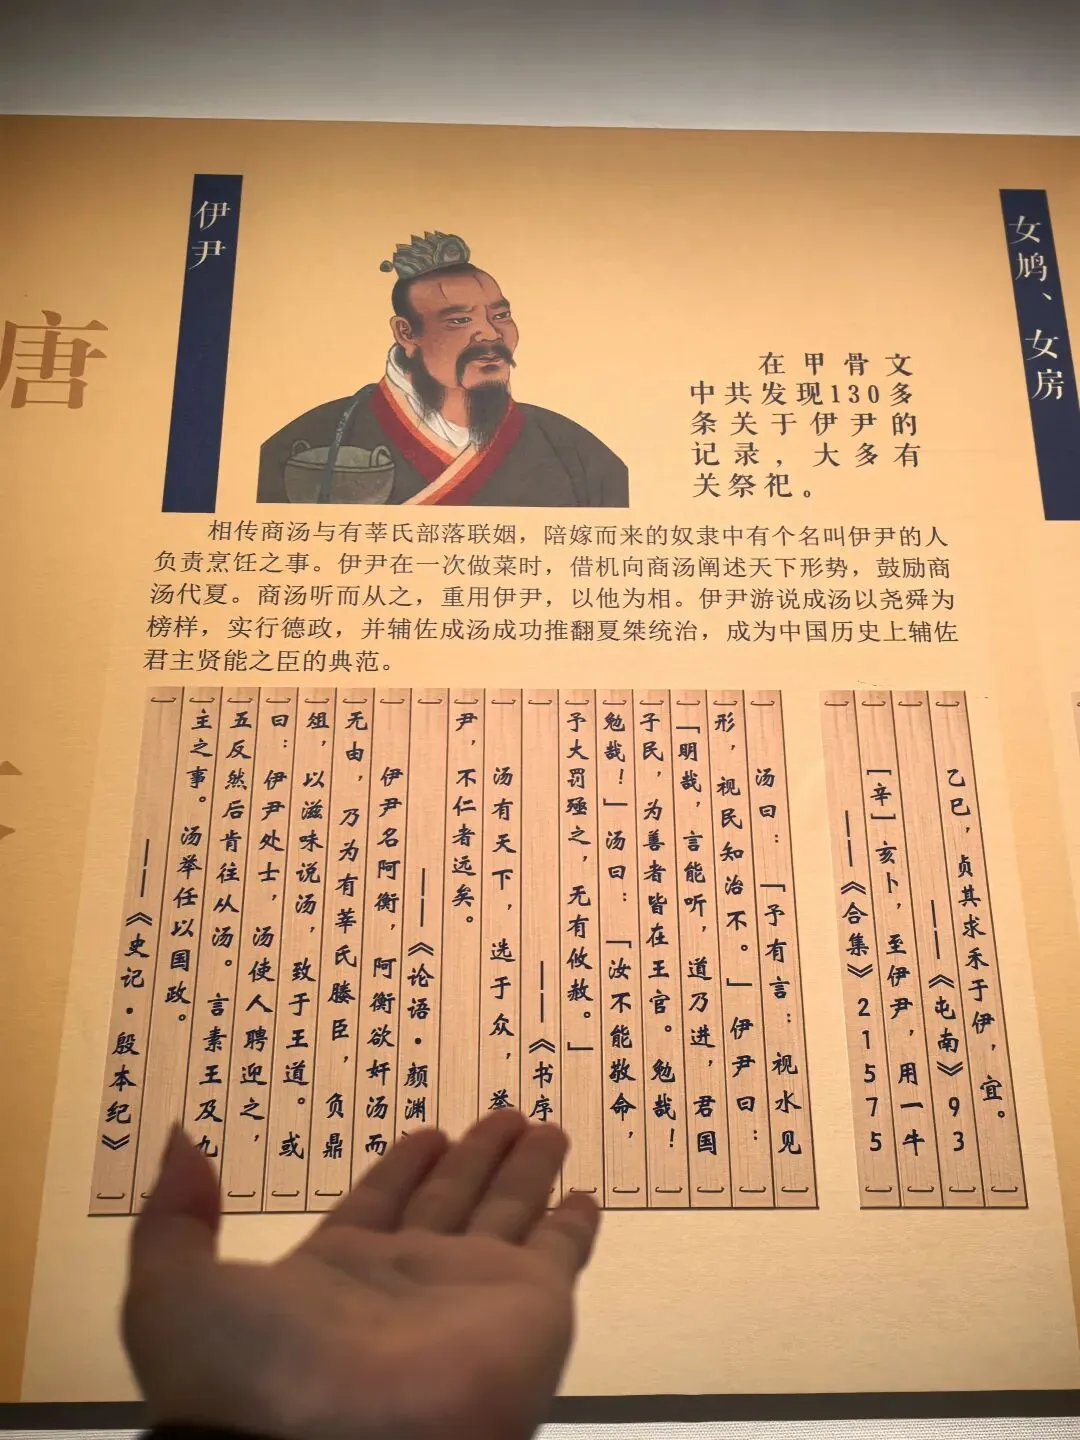 唐
伊尹
女鸠、女房
在甲骨文
中共发现130多
条关于伊尹的
记录，大多有
关祭祀。
相传商汤与有莘氏部落联姻，陪嫁而来的奴隶中有个名叫伊尹的人
负责烹饪之事。伊尹在一次做菜时，借机向商汤阐述天下形势，鼓励商
汤代夏。商汤听而从之，重用伊尹，以他为相。伊尹游说成汤以尧舜为
榜样，实行德政，并辅佐成汤成功推翻夏桀统治，成为中国历史上辅佐
君主贤能之臣的典范。
乙巳，贞其求禾于伊，宜。
——《屯南》93
[辛]亥卜，至伊尹，用一牛
——《合集》21575
汤曰：「予有言：视水见
形，视民知治不。」伊尹曰：
「明哉，言能听，道乃进，君国
子民，为善者皆在王官。勉哉！
勉哉！」汤曰：「汝不能敬命，
予大罚殛之，无有攸赦。」
——《书序
汤有天下，选于众，举
尹，不仁者远矣。
——《论语·颜渊》
伊尹名阿衡，阿衡欲奸汤而
无由，乃为有莘氏媵臣，负鼎
俎，以滋味说汤，致于王道。或
曰：伊尹处士，汤使人聘迎之，
五反然后肯往从汤。言素王及九
主之事。汤举任以国政。
——《史记·殷本纪》